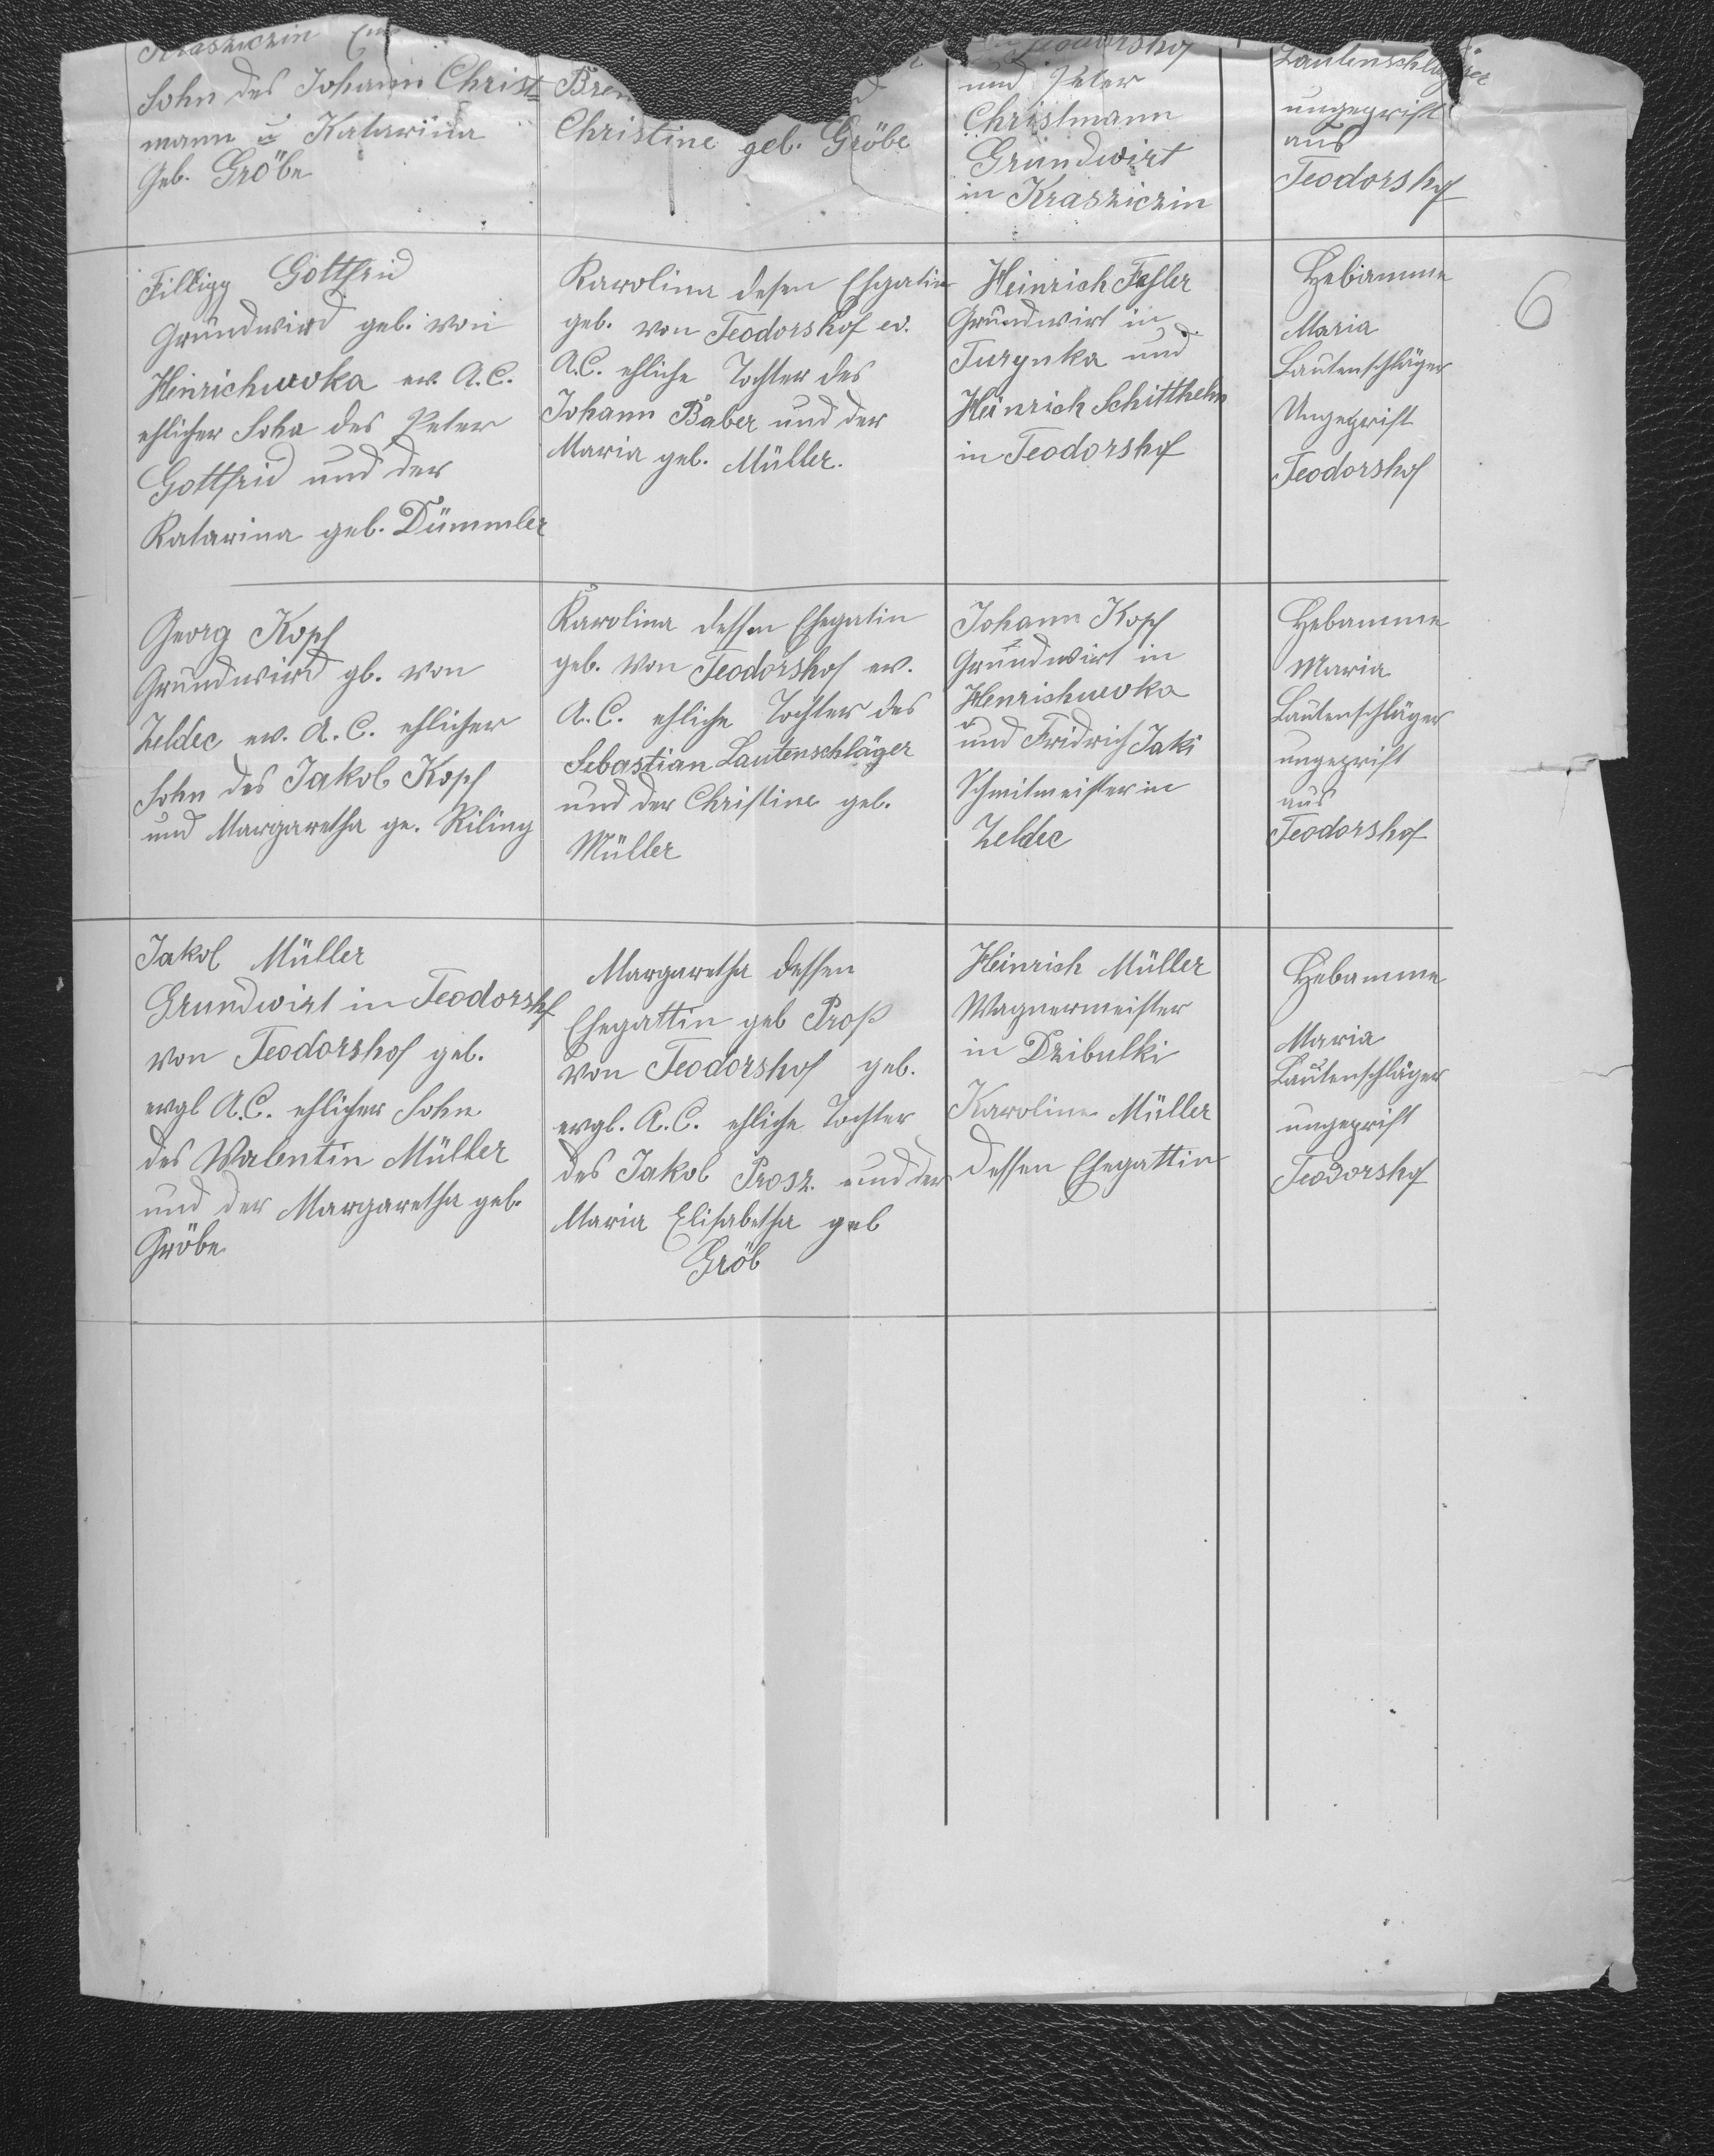 Krasziczin
Sohn des Johann Christ=
mann u Katarina
Geb. Gröbe
Christine geb. Gröbe
Teodorshof
und Peter
Christmann
Grundwirt
in Krasziczin
Lautenschläger
ungeprift
aus
Teodorshof
6
Fillipp Gottfrid
Grundwird geb. von
Heinrichuwka ev. A.C.
ehlicher Sohn des Peter
Gottfrid und der
Katarina geb. Dümmler
Karolina desen Ehgatin
geb. von Teodorshof ev.
A.C. ehliche Tochter des
Johann Baber und der
Maria geb. Müller.
Heinrich Feßler
Grundwirt in
Turynka und
Heinrich Schitthelm
in Teodorshof
Hebamme
Maria
Lautenschläger
Ungeprift
Teodorshof
Georg Kopf
Grundwird gb. von
Zeldec ev. A.C. ehlicher
Sohn des Jakob Kopf
und Margaretha ge. Riling
Karolina dessen Ehegatin
geb. von Teodorshof ev.
A.C. ehliche Tochter des
Sebastian Lautenschläger
und der Christine geb.
Müller
Johann Kopf
Grundwirt in
Henrichuwka
und Fridrich Jaki
Schmitmeister in
Zeldec
Hebamme
Maria
Lautenschläger
ungeprift
aus
Teodorshof
Jakob Müller
Grundwirt in Teodorshf
von Teodorshof geb.
evgl A.C. ehlicher Sohn
des Walentin Müller
und der Margaretha geb.
Gröbe
Margaretha dessen
Ehegattin geb Proß
von Teodorshof geb.
evgl. A.C. ehliche Tochter
des Jakob Prosz. und der
Maria Elisabetha geb
Gröb
Heinrich Müller
Wagnermeister
in Dzibulki
Karoline Müller
dessen Ehegattin
Hebamme
Maria
Lautenschläger
ungeprift
Teodorshof